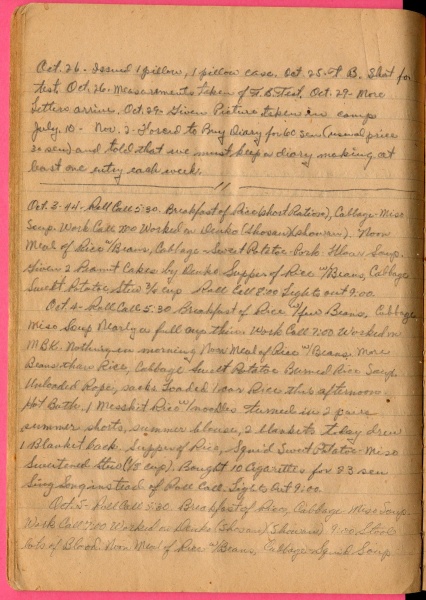 Oct. 26 - Issued 1 pillow, 1 pillow case. Oct. 25 - T. B. Shot for
test. Oct. 26 - Measurements taken of T. B. Test. Oct. 29 - More
letters arrive. Oct. 29 - Given Picture taken in camp
July 10 - Nov. 2 - Forced to Buy Diary for 60 sen (usual price
20 sen) and told that we must keep a diary making at
least one entry each week.
Oct. 3-44 - Roll Call 5:30. Breakfast of Rice (short Rations), Cabbage-Miso
Soup. Work Call 7:00 Worked on Denko (Shosan) (showers). Noon
Meal of Rice w/Beans, Cabbage-Sweet Potatoe-Pork-Flour Soup.
Given 2 Peanut Cakes by Denko. Supper of Rice w/Beans, Cabbage
Sweet Potatoe Stew 3/4 cup. Roll Call 8:00 Lights out 9:00.
Oct. 4 - Roll Call 5:30 Breakfast of Rice w/few Beans, Cabbage
Miso Soup Nearly a full cup thin. Work Call 7:00 Worked in
MBK. Nothing in morning Noon Meal of Rice w/Beans. More
Beans than Rice, Cabbage Sweet Potatoe Burned Rice Soup.
Unloaded Rope, sacks Loaded 1 car Rice this afternoon.
Hot Bath. 1 Messkit Rice w/noodles Turned in 2 pair
summer shorts, summer blouse, 2 blankets today drew
1 Blanket back. Supper of Rice, Squid Sweet Potatoe Miso
Sweetened Stew (1/2 cup). Bought 10 Cigarettes for 23 sen
Sing Song instead of Roll Call. Lights Out 9:00.
Oct. 5 - Roll Call 5:30. Breakfast of Rice, Cabbage Miso Soup.
Work Call 7:00 Worked on Denko (Shosan) (Showani) 9:00. Stools
lots of Blood. Noon Meal of Rice w/Beans, Cabbage-Squid Soup